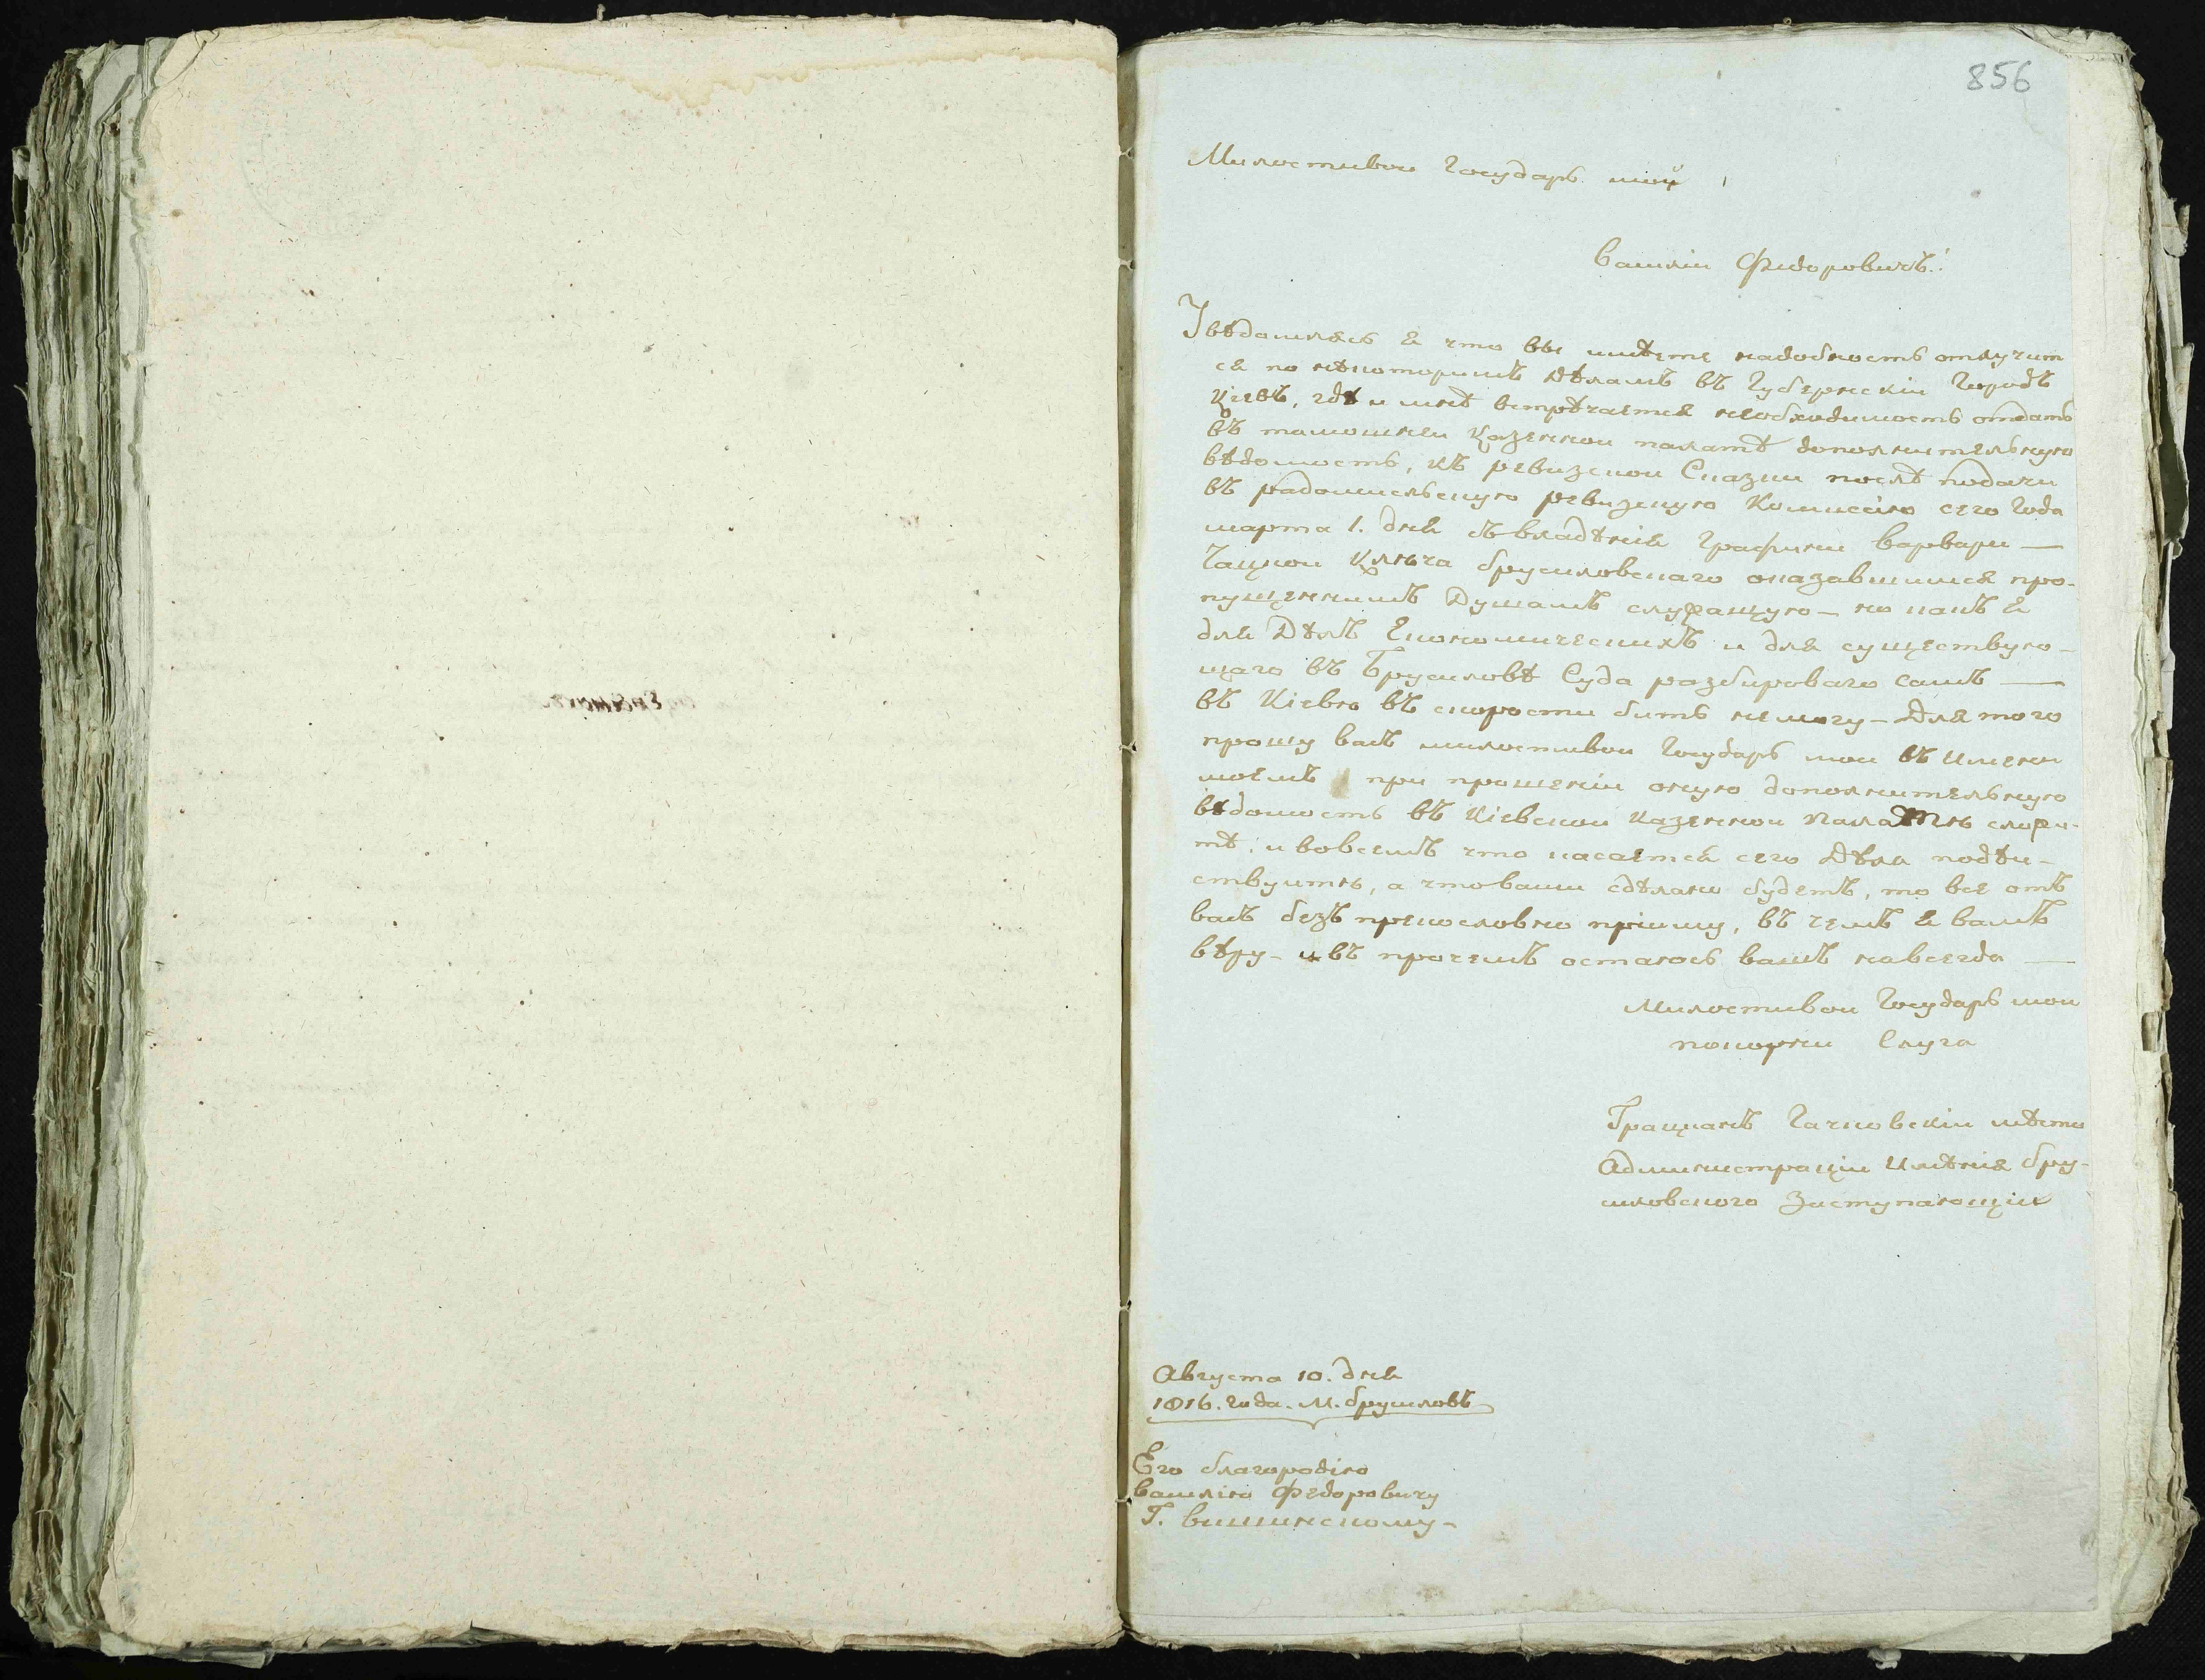 856
Милостивои Государь мой!
Василiи Федоровичъ!
Увѣдомлясь я что вы имѣете надобность отлучит
ся по нѣкоторимъ дѣламъ въ Губернскiи Городъ
Кiевъ, гдѣ и мнѣ встрѣчается необходимость отдать
въ тамошнеи Казеннои палатѣ дополнительную
вѣдомость, къ ревизскои Сказки послѣ подачи
въ радомисльскую ревизскую Коммисiю сего Года
марта 1. дня съ владѣнiя Графини варвари —
Чацкои Ключа брусиловскаго оказавшимся про-
пущеннимъ Душамъ служащую — но какъ я
для Дѣлъ Економическихъ и для существую-
щаго въ Брусиловѣ Суда разбироваго самъ —
въ Кiевю въ скорости бить немогу — Для того
прошу васъ милостивои Государь мои въ имени
моемъ при прошенiи оную дополнительную
вѣдомость въ Кiевскои казеннои палатѣ сложи-
тѣ, и вовсемъ что касается сего Дѣла подѣи-
ствуитѣ, а что вами сдѣлано будетъ, то все отъ
васъ безъ прекословно прiиму, въ чемъ я вамъ
вѣру — и въ прочемъ остаюсь вашъ навсегда —
Милостивои Государь мои
покорни Слуга
Грациянъ Гачковскiи мѣсто
Администрацiи имѣнiя бру-
силовского Заступающiи
Августа 10. дня
1816. года. М. брусиловъ
Его благородiю
василiю Федоровичу
Г. вишинскому —